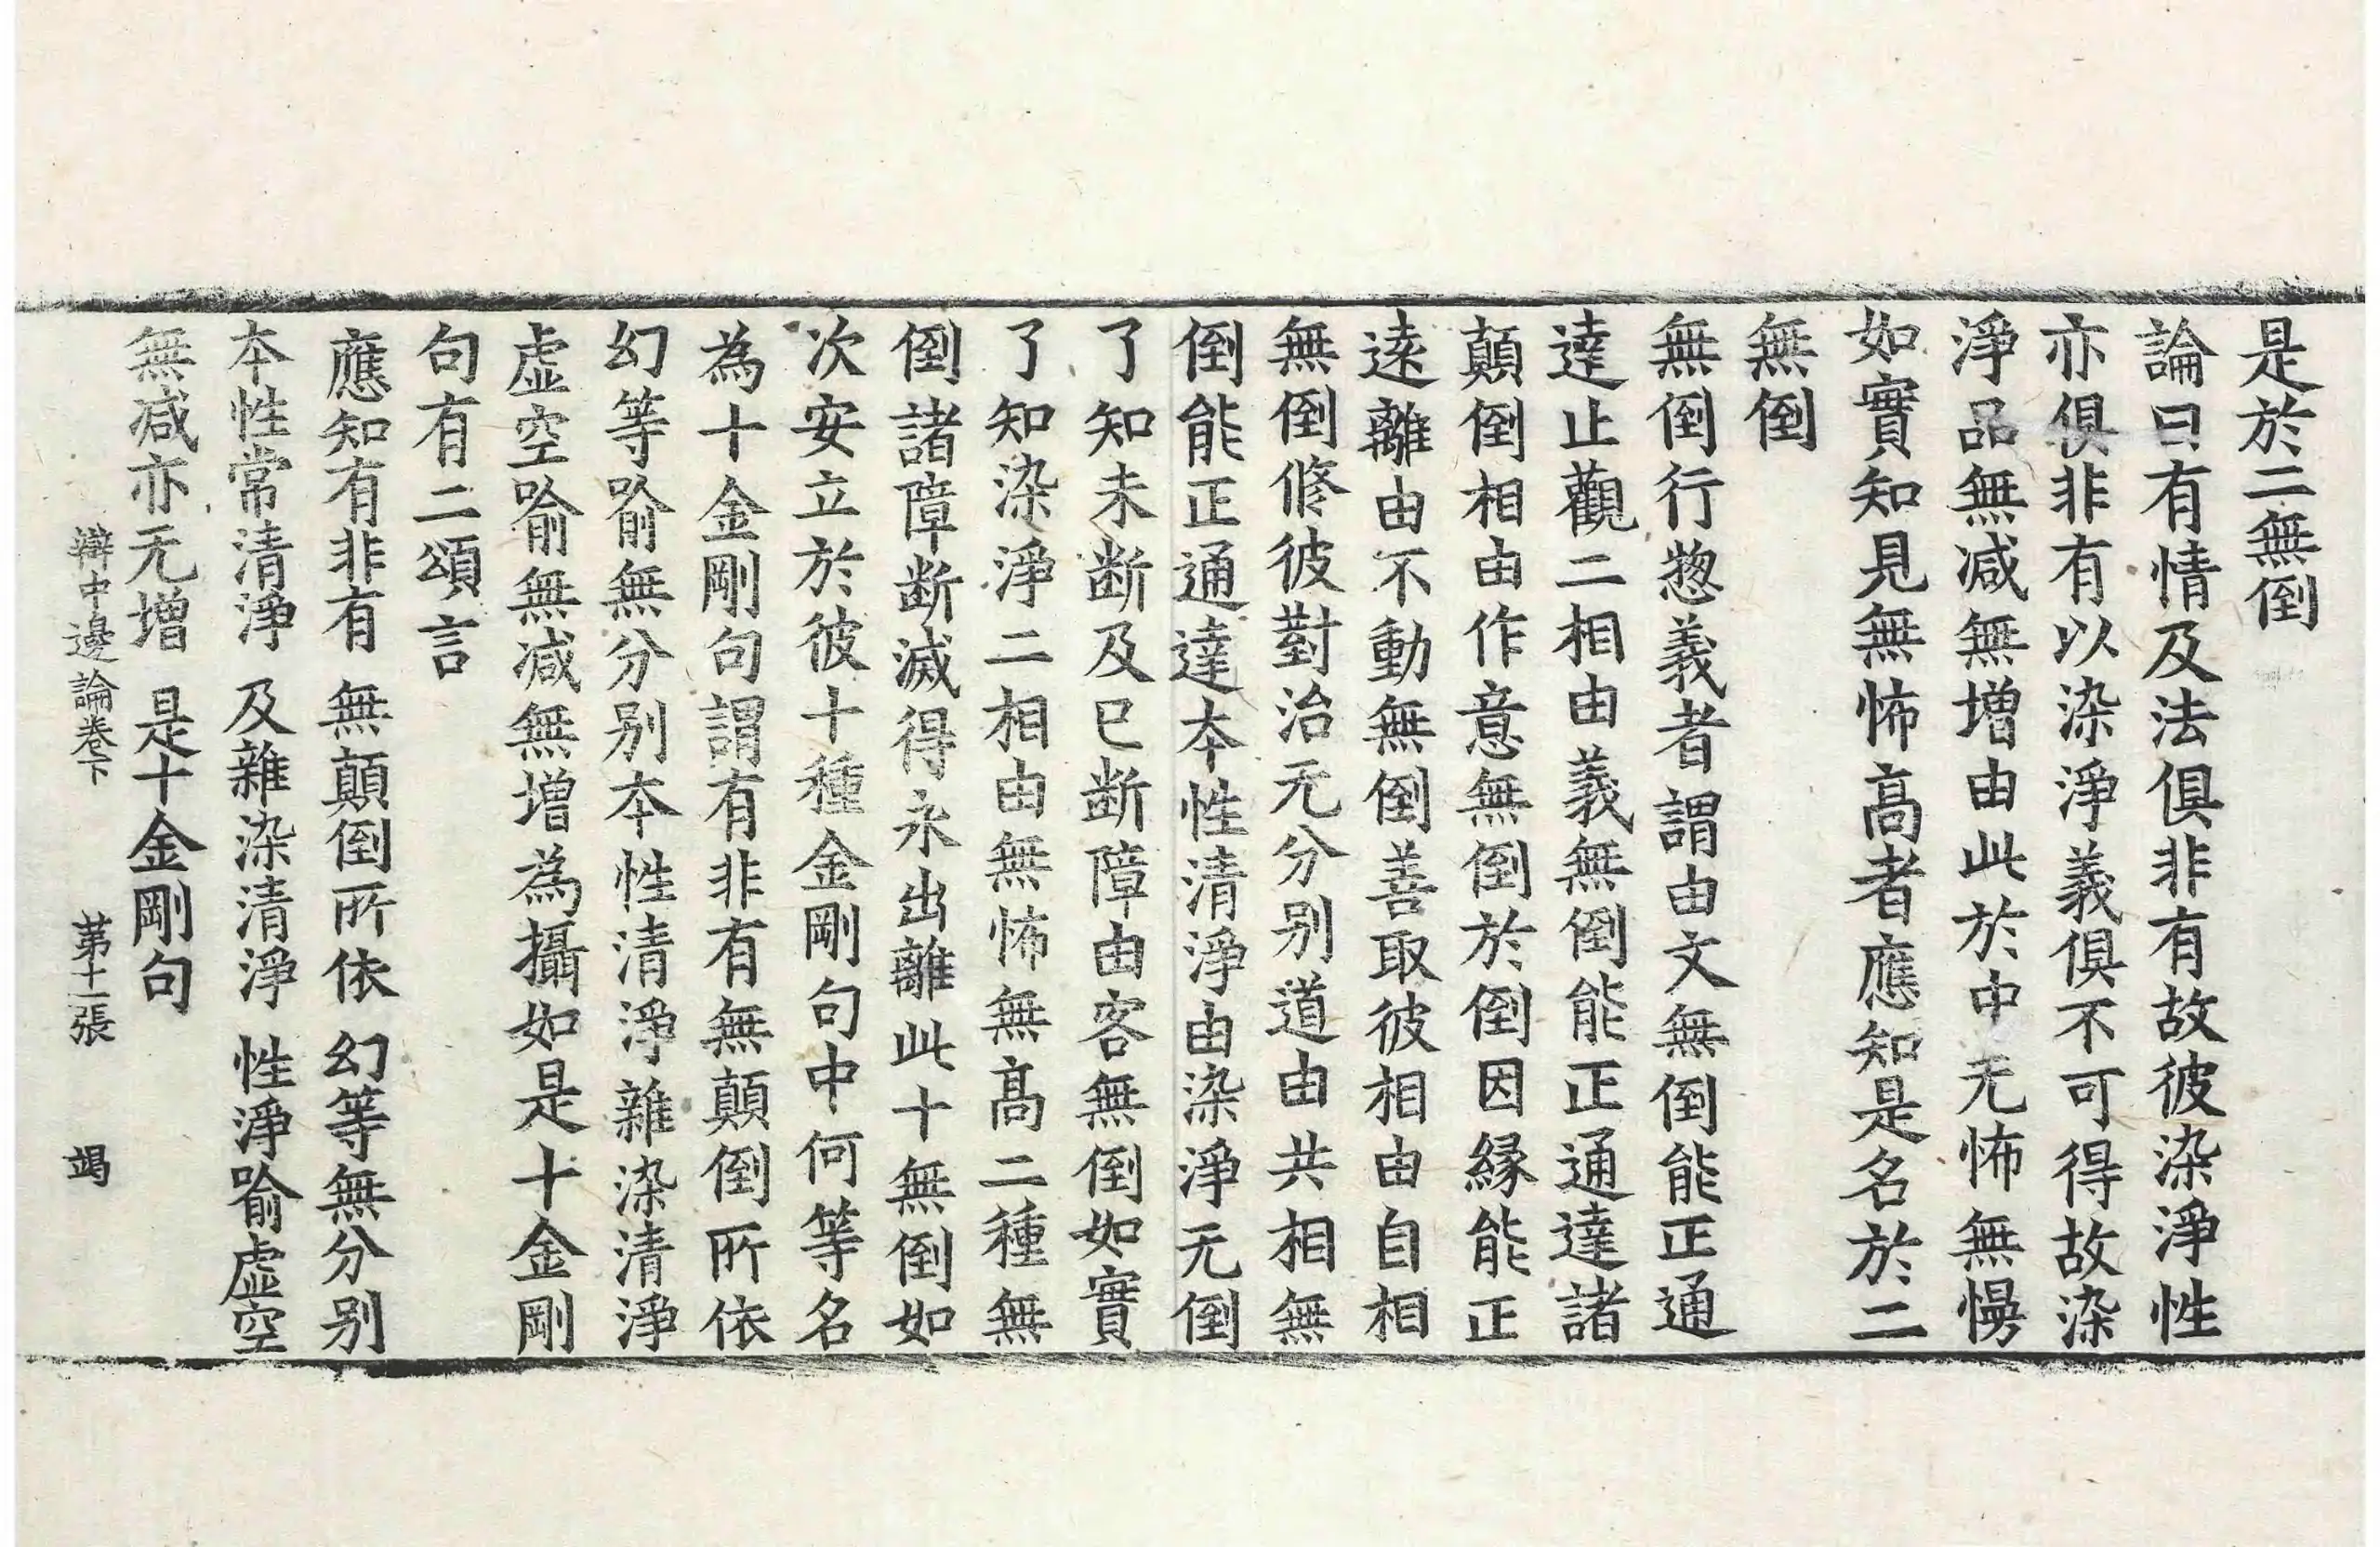 是於二無倒
論曰有情及法俱非有故彼染淨性
亦俱非有以染淨義俱不可得故染
淨品無减無增由此於中无怖無慢
如實知見無怖高者應知是名於二
無倒
無倒行惣義者謂由文無倒能正通
達止觀二相由義無倒能正通達諸
顛倒相由作意無倒於倒因緣能正
遠離由不動無倒善取彼相由自相
無倒修彼對治无分别道由共相無
倒能正通達本性清淨由染淨无倒
了知未断及已断障由客無倒如實
了知染淨二相由無怖無髙二種無
倒諸障断滅得永出離此十無倒如
次安立於彼十種金剛句中何等名
為十金剛句謂有非有無顛倒所依
幻等喻無分别本性清淨雜染清淨
虛空喻無减無增為攝如是十金剛
句有二頌言
應知有非有 無顛倒所依 幻等無分别
本性常清淨 及雜染清淨 性淨喻虛空
無减亦无增 是十金剛句
辯中邊論卷下 苐十一張 竭